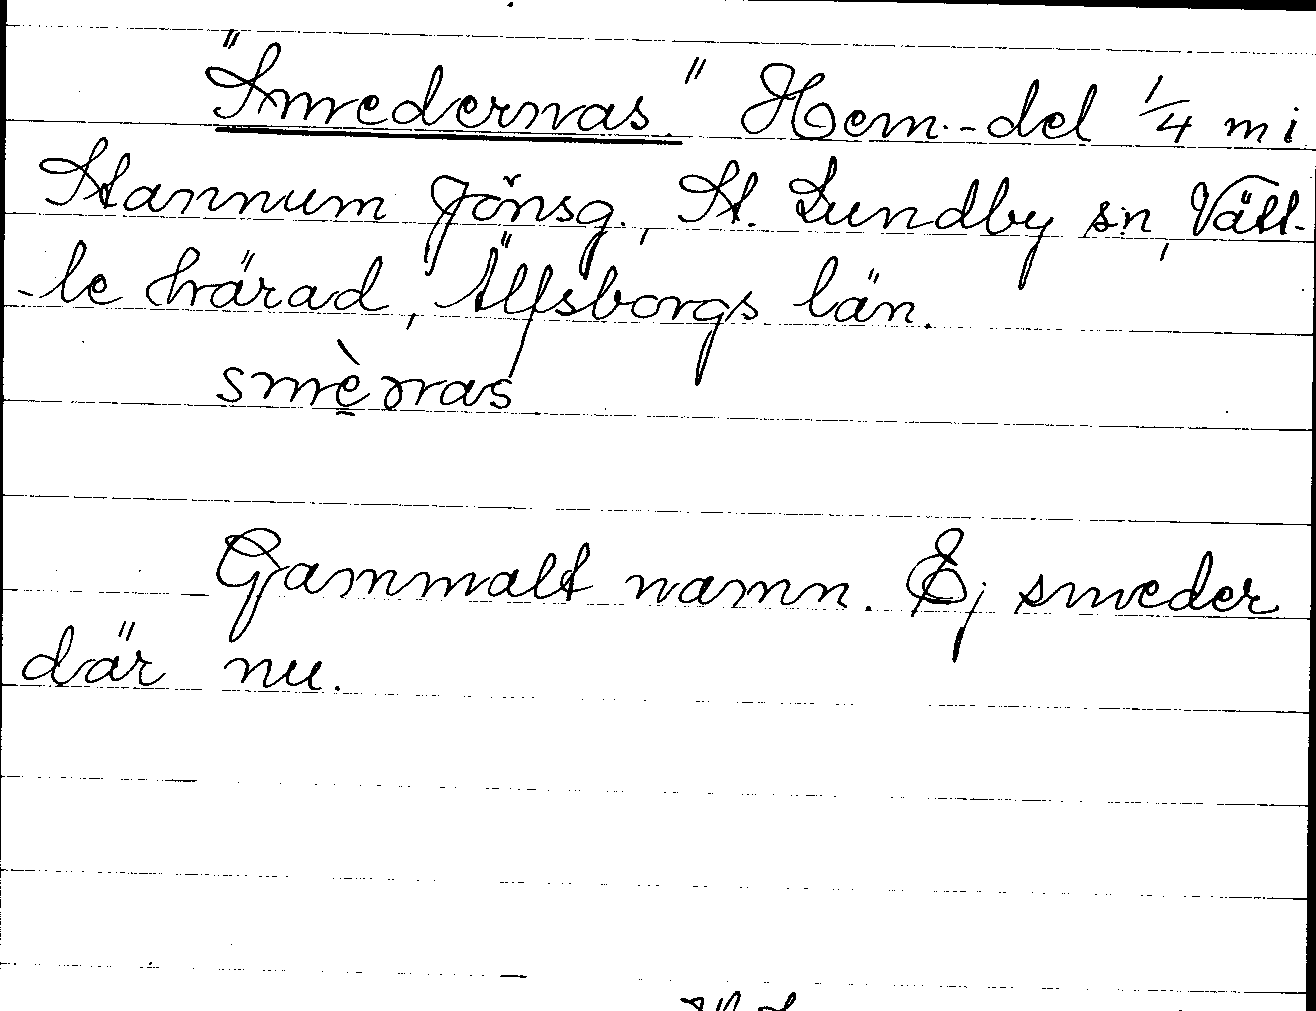 "Smedernas" Hem.-del 1/4 m i
Stannum Jönsg., St. Lundby sn, Vätt-
-le härad, Älfsborgs län.
smè̠rras
Gammalt namn. Ej smeder
där nu.